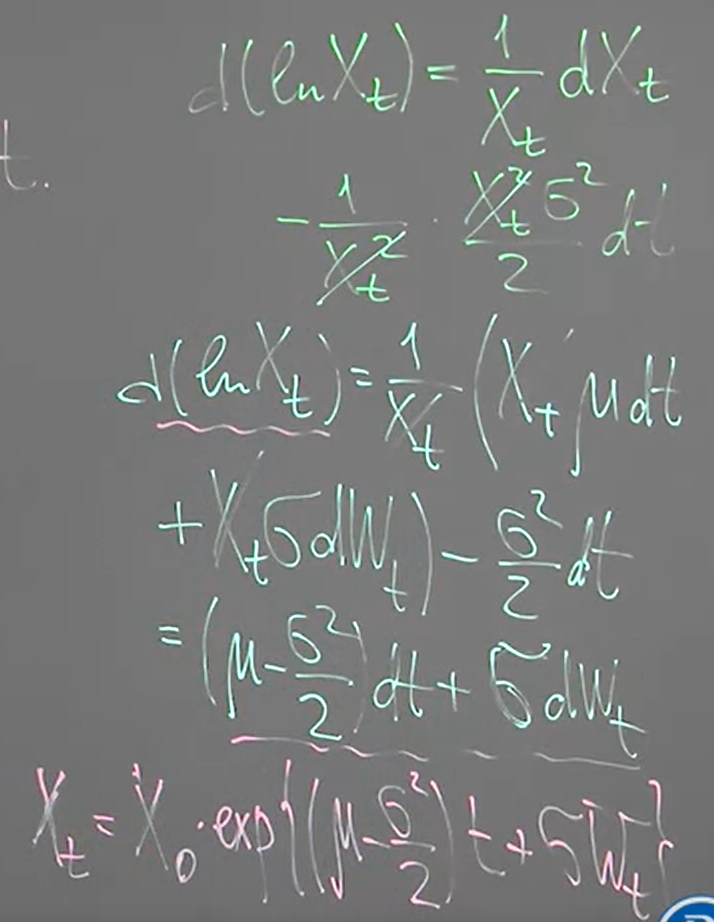 d(ln X_t) = \frac{1}{X_t} dX_t
t.
- \frac{1}{X_t^2} · \frac{X_t^2 σ^2}{2} dt
d(ln X_t) = \frac{1}{X_t} (X_t μ dt
+ X_t σ dW_t) - \frac{σ^2}{2} dt
= (μ - \frac{σ^2}{2}) dt + σ dW_t
X_t = X_0 · exp{(μ - \frac{σ^2}{2}) t + σ W_t}